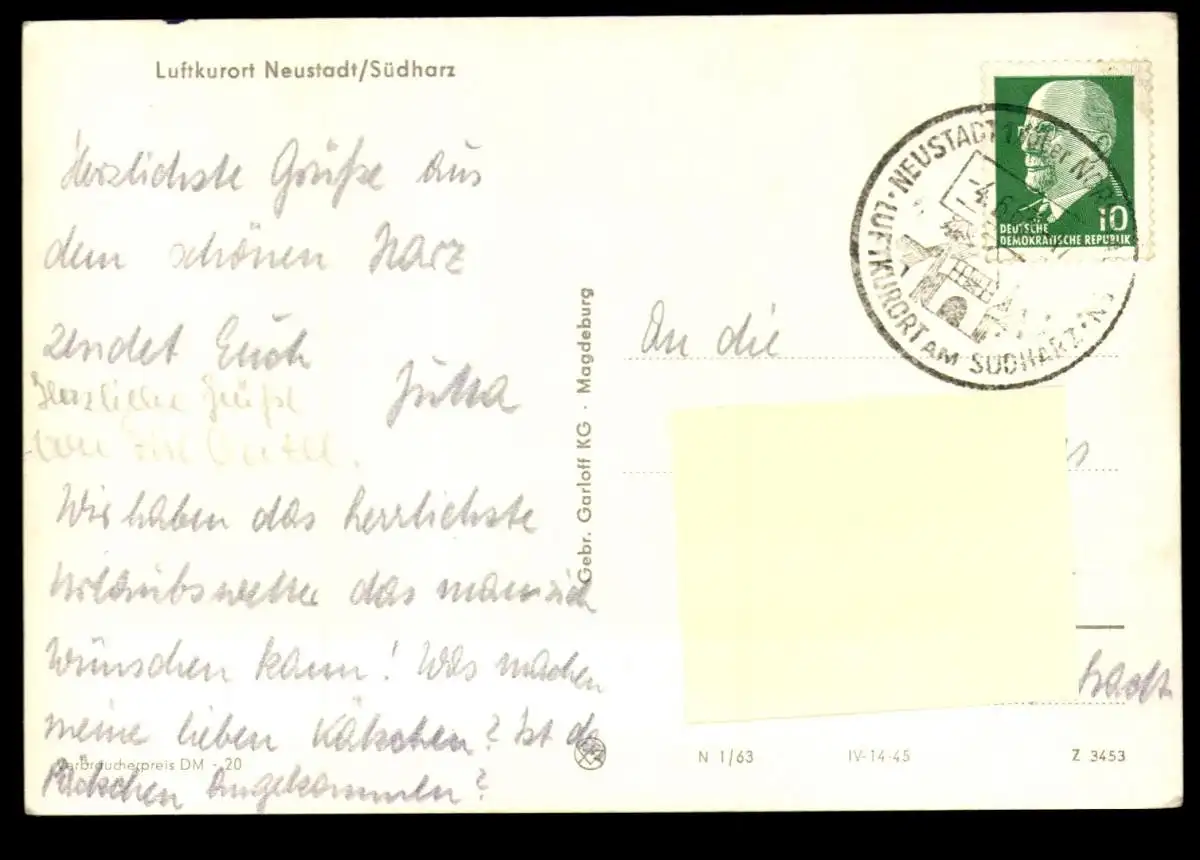 Luftkurort Neustadt/Südharz
Herzlichste Grüße aus
dem schönen Harz
sendet Euch
Jutta
Herzliche Grüße
von
Wir haben das herrlichste
Urlaubswetter das man sich
wünschen kann! Was machen
meine lieben Kätzchen? Ist das
Päckchen angekommen?
Verbraucherpreis DM -.20
Gebr. Garloff KG · Magdeburg
NEUSTADT über NOR
LUFTKURORT AM SÜDHARZ
10
DEUTSCHE
DEMOKRATISCHE REPUBLIK
An die
N 1/63
IV-14-45
Z 3453